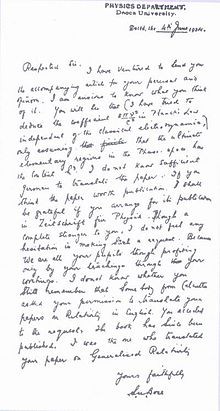 PHYSICS DEPARTMENT,
Dacca University.
Dated, the 4th June 1924.
Respected Sir, I have ventured to send you
the accompanying article for your perusal and
opinion. I am anxious to know what you think
of it. You will see that I have tried to
deduce the coefficient 8πν²/c³ in Planck's Law
independent of the classical electrodynamics,
only assuming that the ultimate
elementary regions in the Phase-space has
the content h³. I do not know sufficient
German to translate the paper. If you
think the paper worth publication, I shall
be grateful if you arrange for its publication
in Zeitschrift für Physik. Though a
complete stranger to you, I do not feel any
hesitation in making such a request. Because
we are all your pupils though profiting
only by your teachings through your
writings. I do not know whether you
still remember that somebody from Calcutta
asked your permission to translate your
papers on Relativity in English. You acceded
to the request. The book has since been
published. I was the one who translated
your paper on Generalised Relativity
Yours faithfully
SNBose